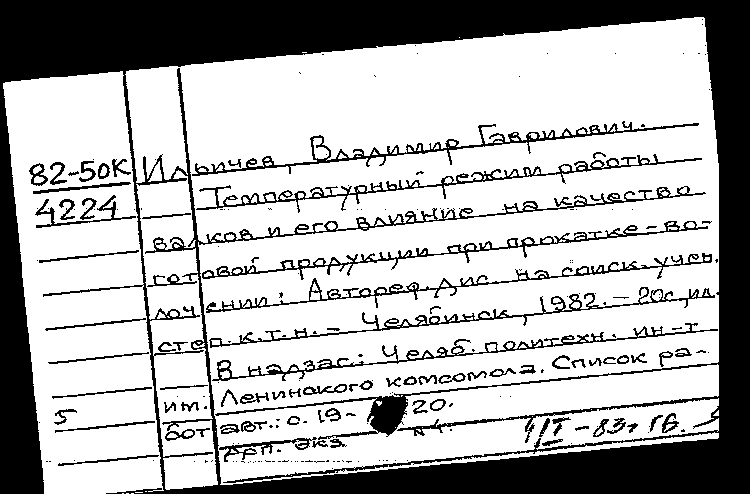 82-50К Ильичев, Владимир Гаврилович.
4224 Температурный режим работы
валков и его влияние на качество
готовой продукции при прокатке-во-
лочении: Автореф. дис. на соиск. учен.
степ. к.т.н. - Челябинск, 1982. - 20с, ил.
В надзас.: Челяб. политехн. ин-т
им. Ленинского комсомола. Список ра-
5 бот авт.: с. 19-20.
Арп. экз. N1. 4/I-83г